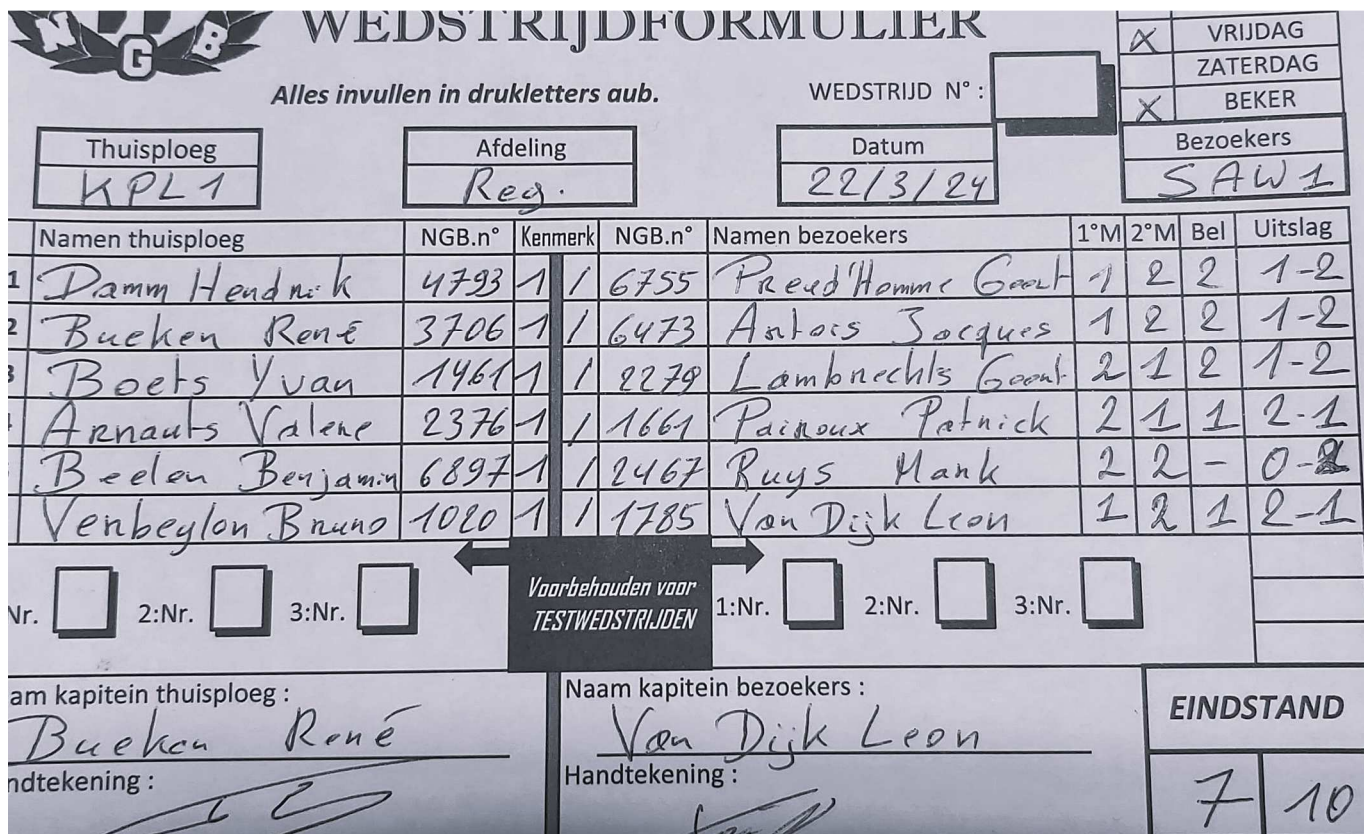 NGB
WEDSTRIJDFORMULIER
Alles invullen in drukletters aub.
WEDSTRIJD N° :
X VRIJDAG
ZATERDAG
X BEKER
Thuisploeg
KPL 1
Afdeling
Reg.
Datum
22/3/24
Bezoekers
SAW 1
Namen thuisploeg NGB.n° Kenmerk NGB.n° Namen bezoekers 1°M 2°M Bel Uitslag
1 Damm Hendrik 4793 1 / 6755 Preud'Homme Geert 1 2 2 1-2
2 Bueken René 3706 1 / 6473 Antois Jacques 1 2 2 1-2
3 Boets Yvan 1461 1 / 2279 Lambrechts Geert 2 1 2 1-2
Arnauts Valere 2376 1 / 1661 Pairoux Patrick 2 1 1 2-1
Beelen Benjamin 6897 1 / 2467 Ruys Mark 2 2 - 0-2
Verbeylen Bruno 1020 1 / 1785 Van Dijk Leon 1 2 1 2-1
Nr. 2:Nr. 3:Nr.
Voorbehouden voor
TESTWEDSTRIJDEN
1:Nr. 2:Nr. 3:Nr.
am kapitein thuisploeg :
Bueken René
ndtekening :
Naam kapitein bezoekers :
Van Dijk Leon
Handtekening :
EINDSTAND
7 10